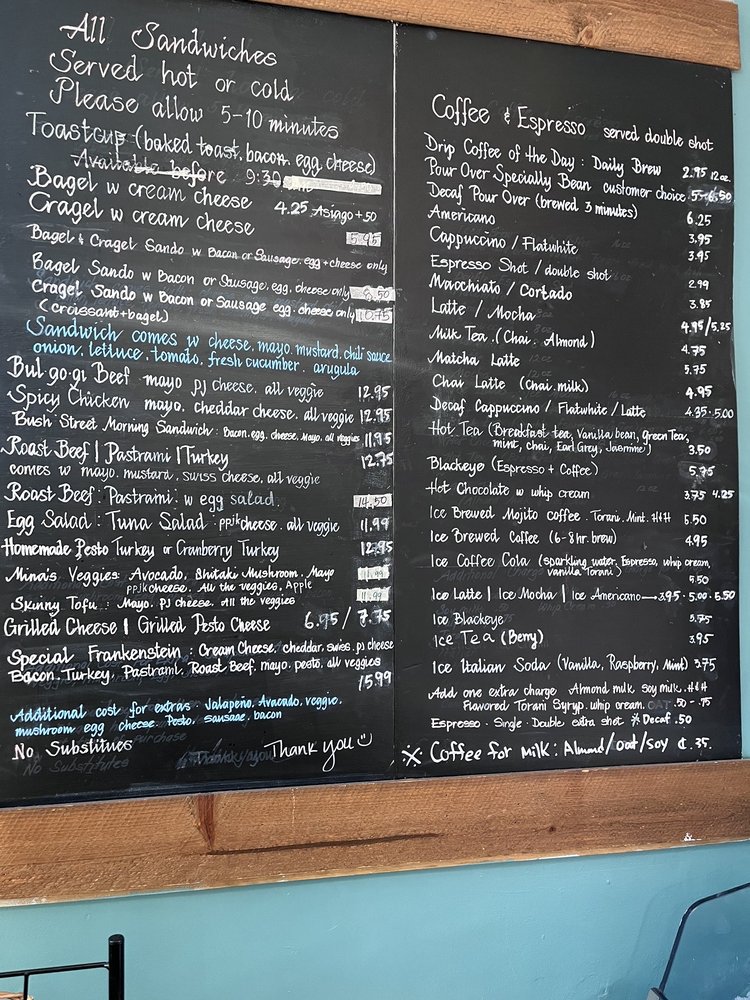 All Sandwiches
Served hot or cold
Please allow 5-10 minutes
Toastcup (baked toast, bacon, egg, cheese)
Available before 9:30
Bagel w cream cheese 4.25 Asiago +50
Cragel w cream cheese 5.95
Bagel & Cragel Sando w Bacon or Sausage, egg + cheese only
Bagel Sando w Bacon or Sausage, egg, cheese only 8.50
Cragel Sando w Bacon or Sausage egg, cheese only 10.75
(croissant+bagel)
Sandwich comes w cheese, mayo, mustard, chili sauce
onion, lettuce, tomato, fresh cucumber, arugula
Bul go-gi Beef mayo pj cheese, all veggie 12.95
Spicy Chicken mayo, cheddar cheese, all veggie 12.95
Bush Street Morning Sandwich: Bacon, egg, cheese, mayo, all veggies 11.95
Roast Beef | Pastrami | Turkey 12.75
comes w mayo, mustard, swiss cheese, all veggie
Roast Beef: Pastrami: w egg salad 14.50
Egg Salad: Tuna Salad: ppjk cheese, all veggie 11.99
Homemade Pesto Turkey or Cranberry Turkey 12.95
Mina's Veggies: Avocado, Shitaki Mushroom, Mayo 11.99
ppjk cheese, All the veggies, Apple
Skinny Tofu: Mayo, PJ cheese, all the veggies 11.99
Grilled Cheese | Grilled Pesto Cheese 6.95 / 7.75
Special Frankenstein: Cream Cheese, cheddar, swiss, pj cheese
Bacon, Turkey, Pastrami, Roast Beef, mayo, pesto, all veggies
15.99
Additional cost for extras: Jalapeño, Avacado, veggie,
mushroom egg cheese, Pesto, sausage, bacon
No Substitues
Thank you
Coffee & Espresso served double shot
Drip Coffee of the Day: Daily Brew 2.95 12oz.
Pour Over Specialty Bean customer choice 5.5-6.50
Decaf Pour Over (brewed 3 minutes) 6.25
Americano 3.95
Cappuccino / Flatwhite 3.95
Espresso Shot / double shot 2.99
Macchiato / Cortado 3.85
Latte / Mocha 4.95/5.25
Milk Tea. (Chai, Almond) 4.75
Matcha Latte 5.75
Chai Latte (chai, milk) 4.95
Decaf Cappuccino / Flatwhite / Latte 4.35-5.00
Hot Tea (Breakfast tea, Vanilla bean, Green Tea,
mint, chai, Earl Grey, Jasmine) 3.50
Blackeye (Espresso + Coffee) 5.75
Hot Chocolate w whip cream 3.75 4.25
Ice Brewed Mojito coffee. Torani. Mint. H&H 5.50
Ice Brewed Coffee (6-8hr. brew) 4.95
Ice Coffee Cola (sparkling water, Espresso, whip cream,
vanilla Torani) 5.50
Ice Latte | Ice Mocha | Ice Americano 3.95 - 5.00 - 5.50
Ice Blackeye 5.75
Ice Tea (Berry) 3.95
Ice Italian Soda (Vanilla, Raspberry, Mint) 3.75
Add one extra charge Almond milk, soy milk, H&H
Flavored Torani Syryp, whip cream. OAT .50 - .75
Espresso - Single - Double extra shot ※ Decaf .50
※ Coffee for milk: Almond/oat/soy ¢.35.